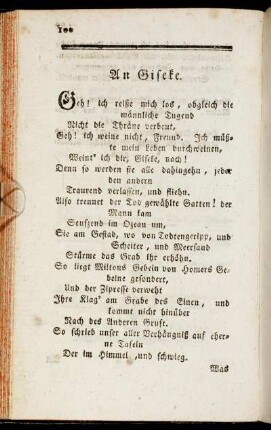 100
An Giseke.
Geh! ich reiße mich los, obgleich die
männliche Tugend
Nicht die Thräne verbeut,
Geh! ich weine nicht, Freund. Ich müß-
te mein Leben durchweinen,
Weint' ich dir, Giseke, nach!
Denn so werden sie alle dahingehn, jeder
den andern
Traurend verlassen, und fliehn.
Also trennet der Tod gewählte Gatten! der
Mann kam
Seufzend im Ozean um,
Sie am Gestad, wo von Todtengeripp, und
Scheiter, und Meersand
Stürme das Grab ihr erhöhn.
So liegt Miltons Gebein von Homers Ge-
beine gesondert,
Und der Zipresse verweht
Ihre Klag' am Grabe des Einen, und
komme nicht hinüber
Nach des Anderen Gruft.
So schrieb unser aller Verhängniß auf eher-
ne Tafeln
Der im Himmel, und schwieg.
Was